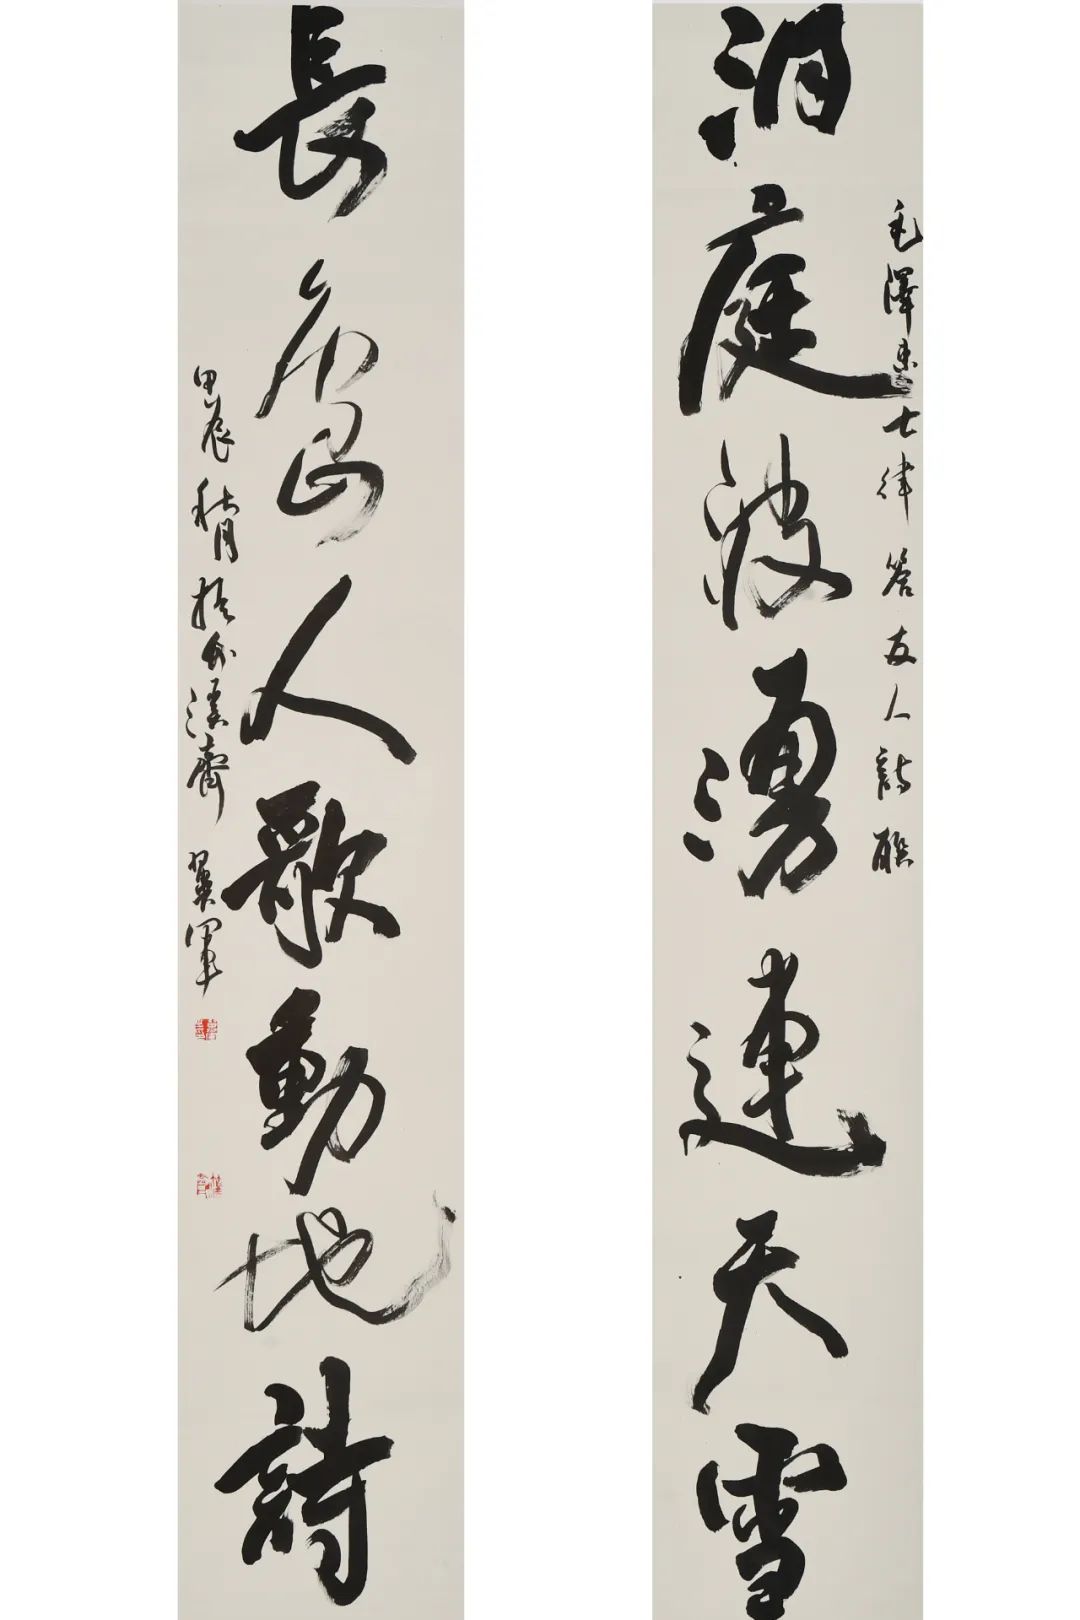 毛澤東七律答友人詩聯
洞庭波湧連天雪
長島人歌動地詩
甲辰秋月於溪齋 翼軍